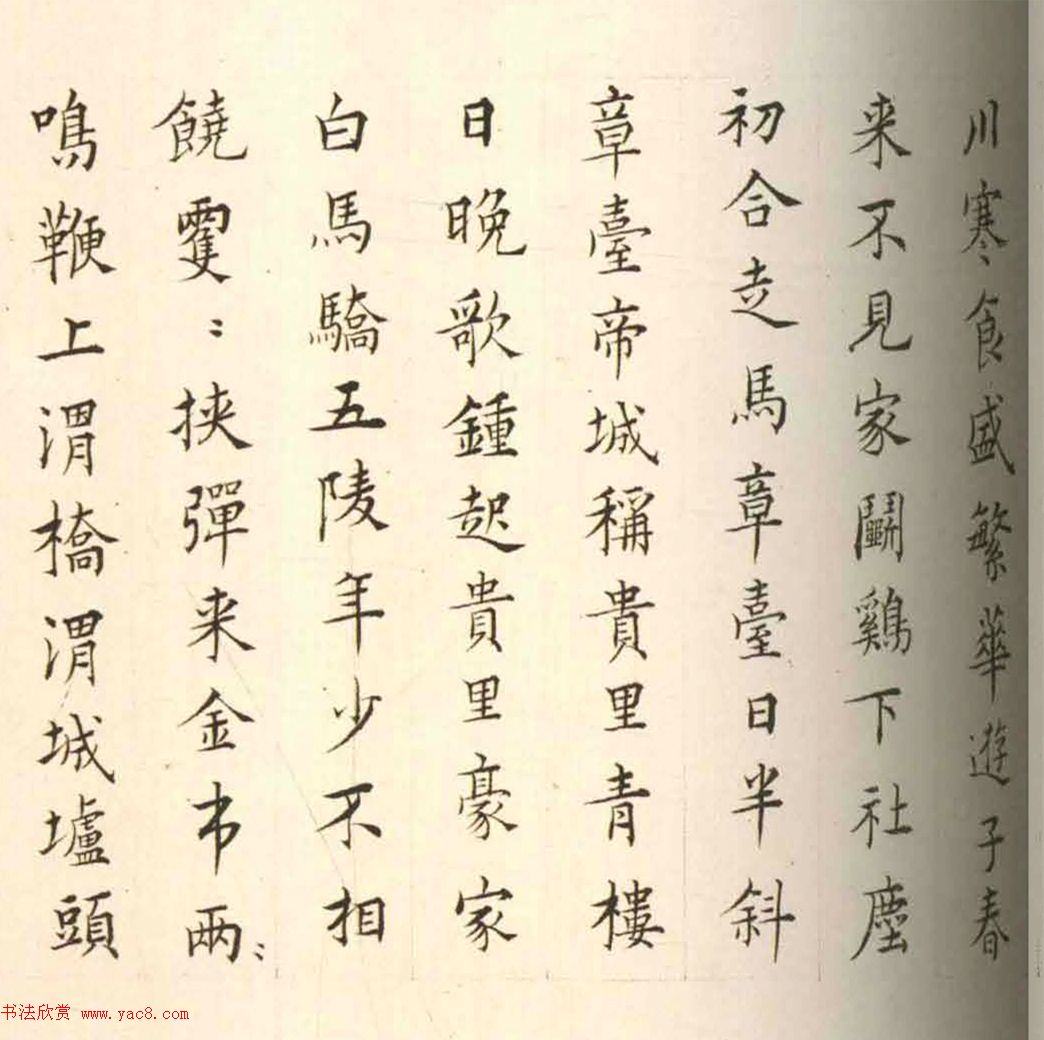 川寒食盛繁華遊子春
来不見家鬭鷄下社塵
初合走馬章臺日半斜
章臺帝城稱貴里青樓
日晚歌鍾起貴里豪家
白馬驕五陵年少不相
饒䨇〻挟彈来金市两〻
鳴鞭上渭橋渭城壚頭
书法欣赏 www.yac8.com